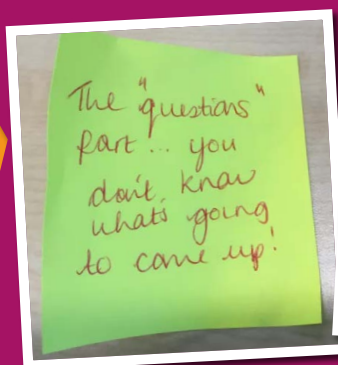 The "questions"
part... you
don't know
whats going
to come up!